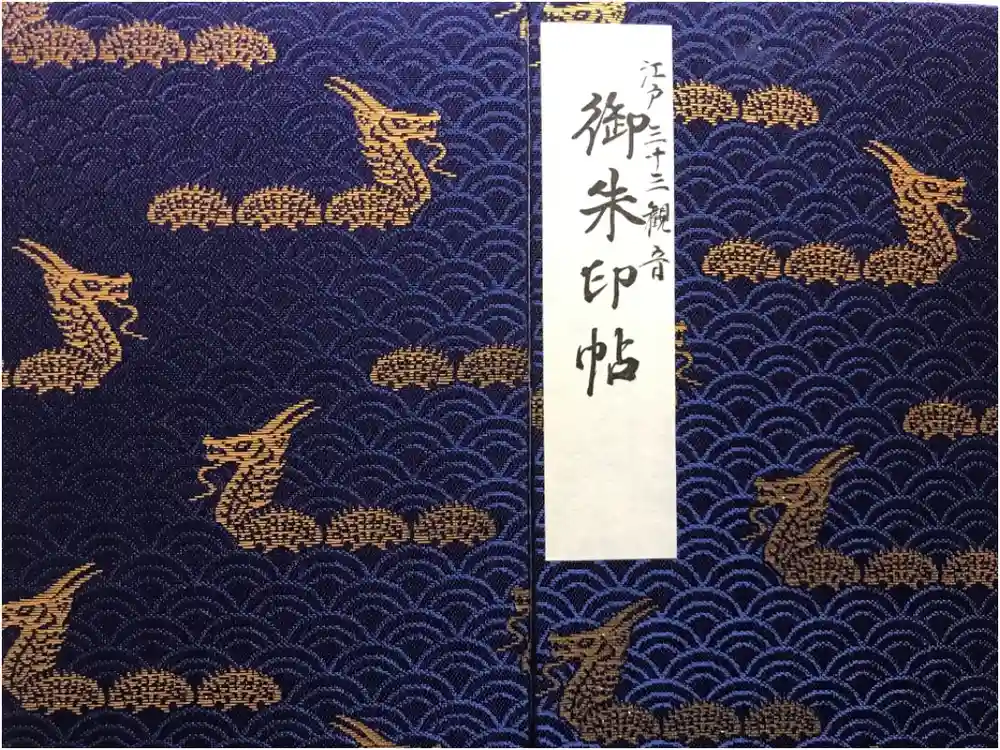 江戸三十三観音
御朱印帖